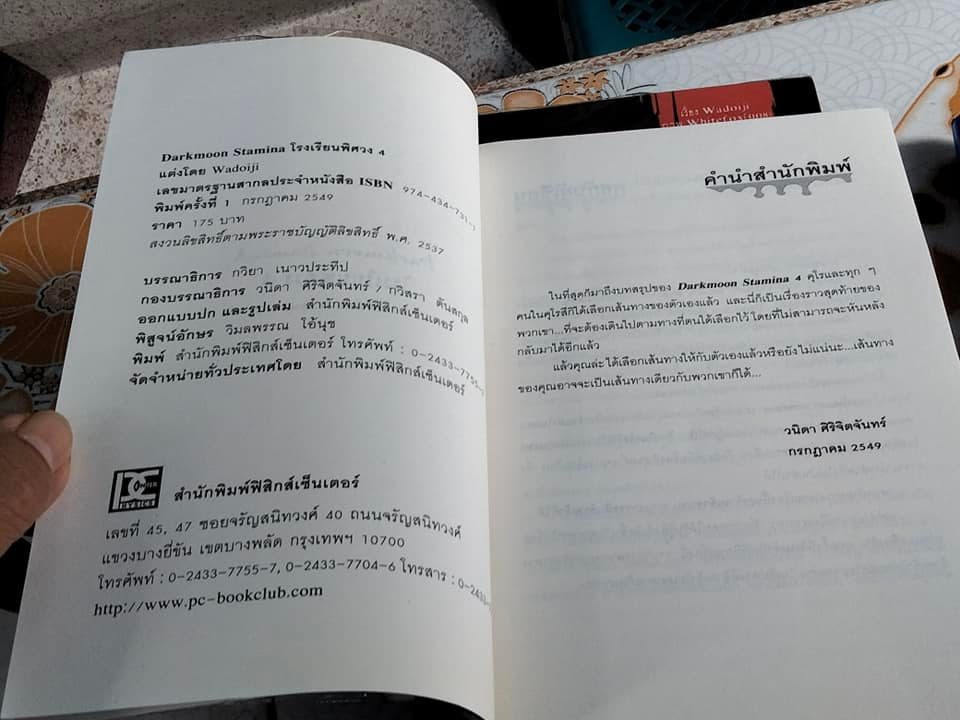 Darkmoon Stamina โรงเรียนพิศวง 4
แต่งโดย Wadoiji
เลขมาตรฐานสากลประจำหนังสือ ISBN 974-434-731-
พิมพ์ครั้งที่ 1 กรกฎาคม 2549
ราคา 175 บาท
สงวนลิขสิทธิ์ตามพระราชบัญญัติลิขสิทธิ์ พ.ศ. 2537
บรรณาธิการ กวิยา เนาวประทีป
กองบรรณาธิการ วนิดา ศิริจิตจันทร์ / กวิสรา ตันสกุล
ออกแบบปก และรูปเล่ม สำนักพิมพ์ฟิสิกส์เซ็นเตอร์
พิสูจน์อักษร วิมลพรรณ โอ้นุช
พิมพ์ สำนักพิมพ์ฟิสิกส์เซ็นเตอร์ โทรศัพท์ : 0-2433-7755-
จัดจำหน่ายทั่วประเทศโดย สำนักพิมพ์ฟิสิกส์เซ็นเตอร์
สำนักพิมพ์ฟิสิกส์เซ็นเตอร์
เลขที่ 45, 47 ซอยจรัญสนิทวงศ์ 40 ถนนจรัญสนิทวงศ์
แขวงบางยี่ขัน เขตบางพลัด กรุงเทพฯ 10700
โทรศัพท์ : 0-2433-7755-7, 0-2433-7704-6 โทรสาร : 0-2433-
http://www.pc-bookclub.com
เรื่อง Wadoiji
คำนำสำนักพิมพ์
ในที่สุดก็มาถึงบทสรุปของ Darkmoon Stamina 4 คุโรและทุก ๆ
คนในคุโรสึก็ได้เลือกเส้นทางของตัวเองแล้ว และนี่ก็เป็นเรื่องราวสุดท้ายของ
พวกเขา...ที่จะต้องเดินไปตามทางที่ตนได้เลือกไว้ โดยที่ไม่สามารถจะหันหลัง
กลับมาได้อีกแล้ว
แล้วคุณล่ะ ได้เลือกเส้นทางให้กับตัวเองแล้วหรือยัง ไม่แน่นะ...เส้นทาง
ของคุณอาจจะเป็นเส้นทางเดียวกับพวกเขาก็ได้...
วนิดา ศิริจิตจันทร์
กรกฎาคม 2549